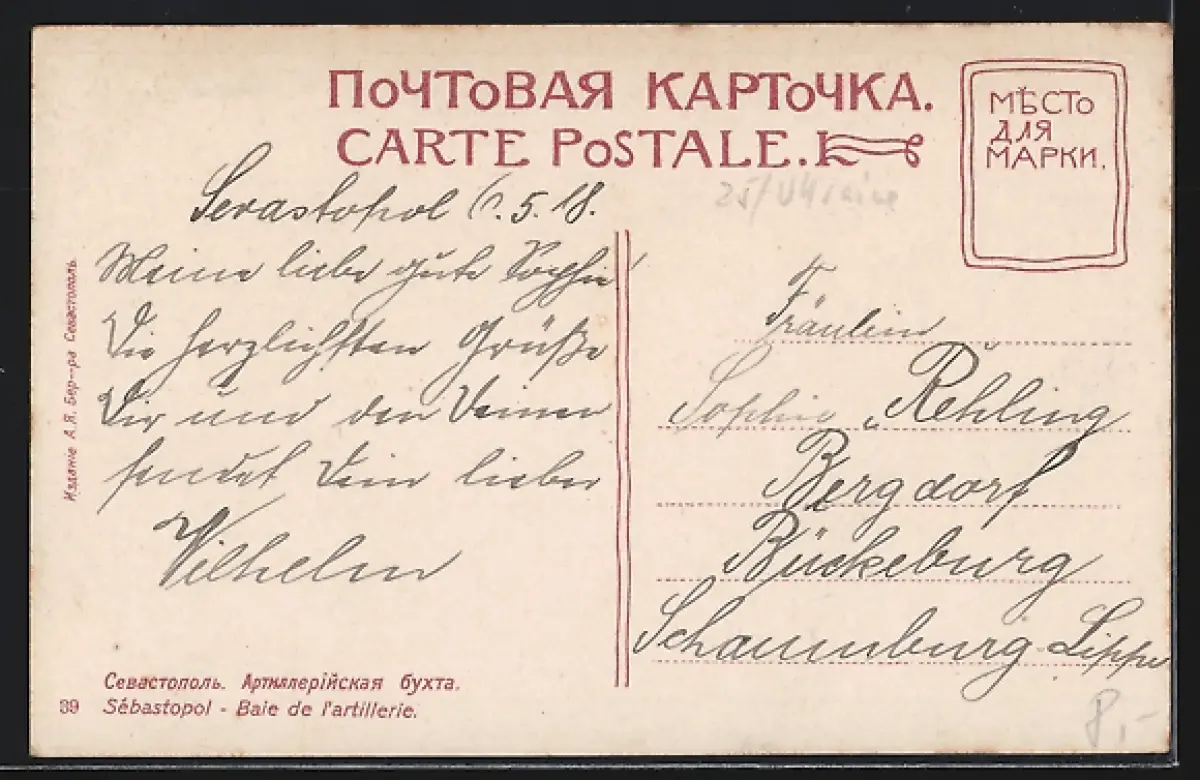 Почтовая карточка.
CARTE POSTALE.
Мѣсто
для
марки.
25/Ukraine
Sevastopol 6.5.18.
Meine liebe gute Sophie!
Die herzlichsten Grüße
Dir und den Deinen
sendet Dein lieber
Wilhelm
Fräulein
Sophie Rehling
Bergdorf
Bückeburg
Schaumburg-Lippe
Изданiе А. Я. Бер—ра Севастополь.
Севастополь. Артиллерiйская бухта.
39 Sébastopol - Baie de l'artillerie.
8,-